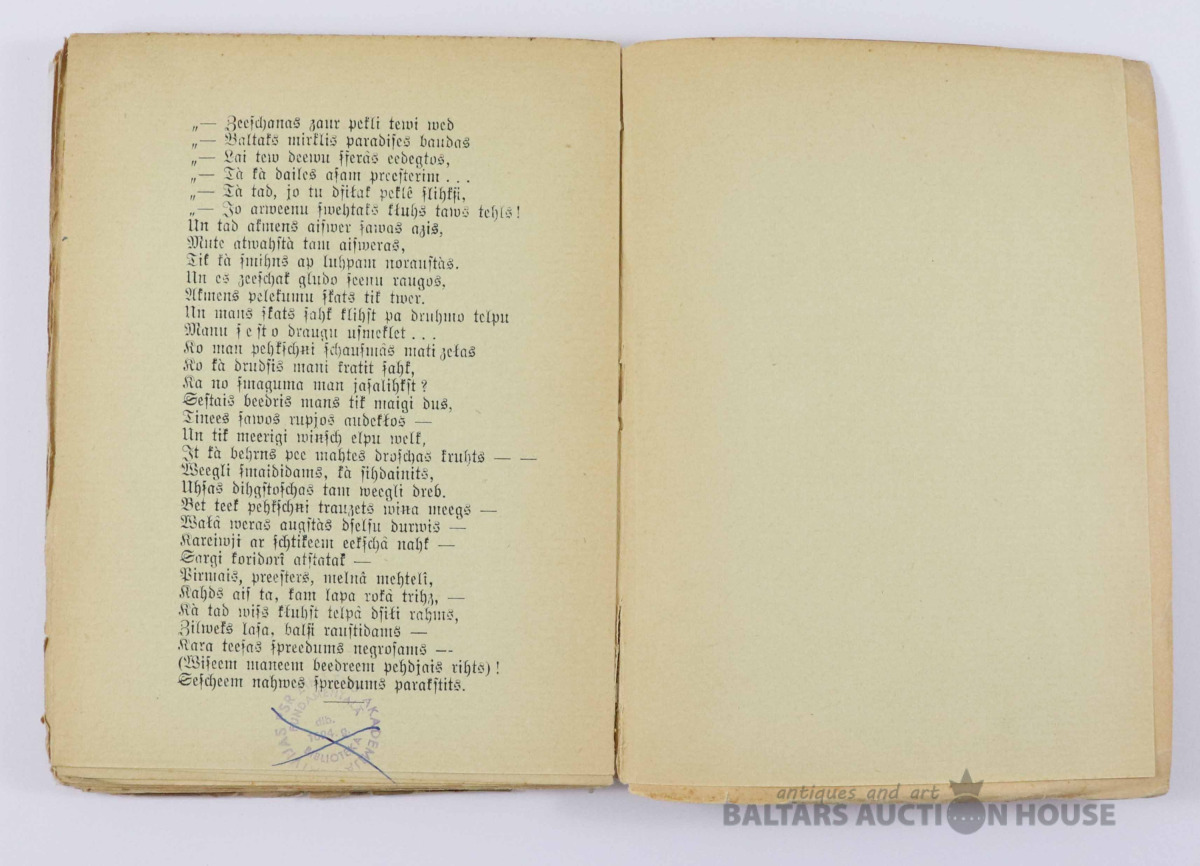 „— Zeeſchanas zaur pekli tewi wed
„— Baltaks mirklis paradiſes baudas
„— Lai tew deewu ſferàs eedegtos,
„— Tà kà dailes aſam preeſterim . . .
„— Tà tad, jo tu dſiłak peklê ſlihkſi,
„— Jo arweenu ſwehtaks kłuhs taws tehls!
Un tad akmens aiſwer ſawas azis,
Mute atwahſtà tam aiſweras,
Tik kà ſmihns ap luhpam norauſtàs.
Un es zeeſchak gludo ſeenu raugos,
Akmens pelekumu ſkats tik twer.
Un mans ſkats ſahk klihſt pa druhmo telpu
Manu ſ e ſt o draugu uſmeklet . . .
Ko man pehkſchņi ſchauſmàs mati zełas
Ko kà drudſis mani kratit ſahk,
Ka no ſmaguma man jaſalihkſt?
Seſtais beedris mans tik maigi dus,
Tinees ſawos rupjos audekłos —
Un tik meerigi wiņſch elpu welk,
It kà behrns pee mahtes droſchas kruhts — —
Weegli ſmaididams, kà ſihdainits,
Uhſas dihgſtoſchas tam weegli dreb.
Bet teek pehkſchņi trauzets wiņa meegs —
Wałâ weras augſtàs dſelſu durwis —
Kareiwji ar ſchtikeem eekſchâ nahk —
Sargi koridorî atſtatak —
Pirmais, preeſters, melnâ mehtelî,
Kahds aiſ ta, kam lapa rokâ trihz, —
Kà tad wiſs kłuhſt telpâ dſiłi rahms,
Zilweks laſa, balſi rauſtidams —
Kara teeſas ſpreedums negroſams —
(Wiſeem maneem beedreem pehdjais rihts)!
Seſcheem nahwes ſpreedums parakſtits.
FUNDAMENTALA
AKADEMIJA
dib.
BIBLIOTEKA
antiques and art
BALTARS AUCTION HOUSE